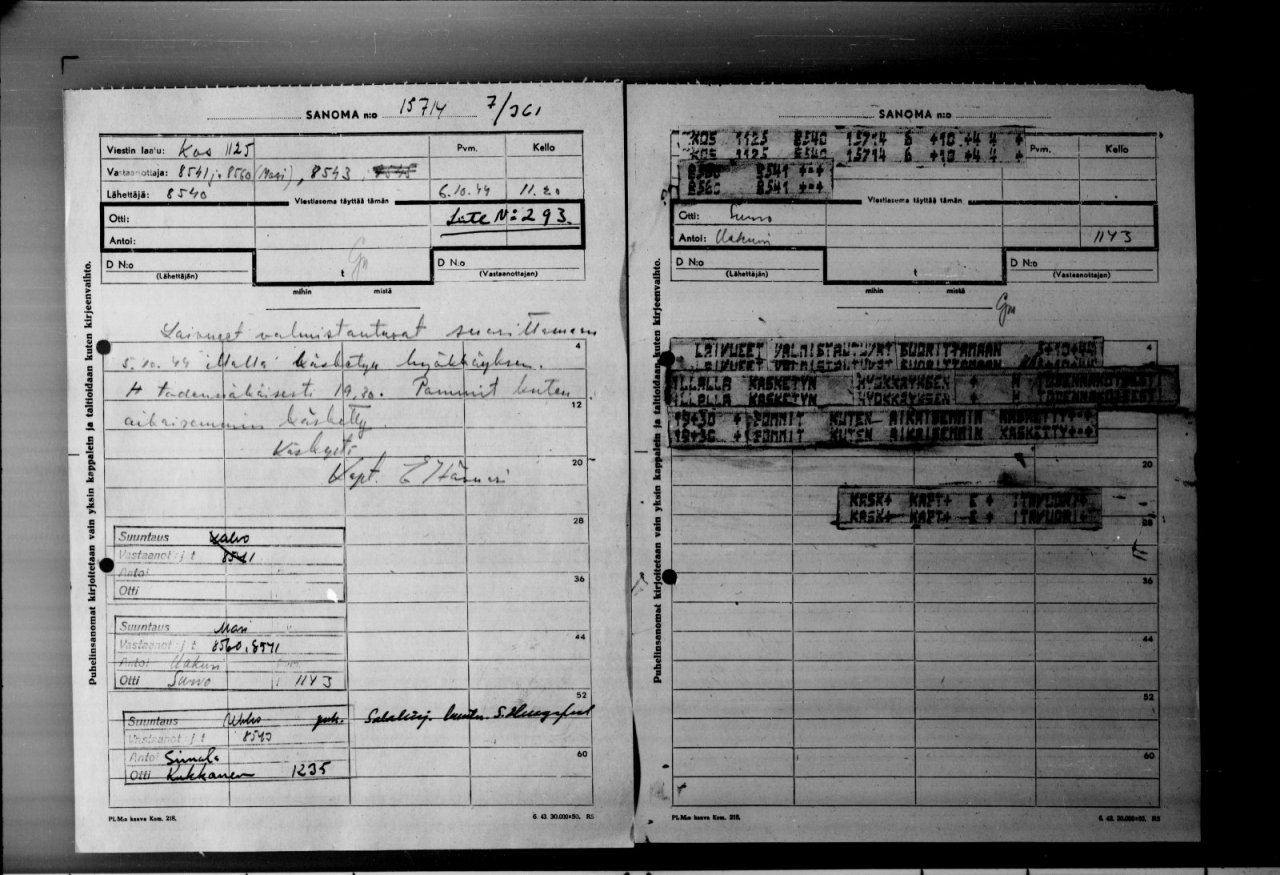 SANOMA n:o 15714 7/361
Viestin laatu: Kos 1125 Pvm. Kello
Vastaanottaja: 8541 ja 8560 (Masi), 8543
Lähettäjä: 8540 6.10.44 11.20
Viestiasema täyttää tämän
Otti: Liite N:o 293.
Antoi:
D N:o t D N:o
(Lähettäjän) (Vastaanottajan)
mihin mistä
Laivueet valmistautuvat suorittamaan
5.10.44 illalla käsketyn hyökkäyksen.
H todennäköisesti 19,30. Pommit kuten
aikaisemmin käsketty.
Käskystä
Kapt. E
4
12
20
28
36
44
52
60
Suuntaus Valvo
Vastaanot j t 8541
Antoi
Otti
Suuntaus Masi
Vastaanot j t 8560, 8541
Antoi Uakuri
Otti Survo 1143
Suuntaus Ukko puh.
Vastaanot j t 8543
Antoi Simola
Otti Kukkanen 1235
Puhelinsanomat kirjoitetaan vain yksin kappalein ja taltioidaan kuten kirjeenvaihto.
PLM:n kaava Kom. 218. 6. 43. 30.000×50. R5
SANOMA n:o
KOS 1125 8540 15714 6 +10 +44 4 +
KOS 1125 8540 15714 6 +10 +44 4 +
Pvm. Kello
8560 8541 +=+
8560 8541 +=+
Viestiasema täyttää tämän
Otti: Survo
Antoi: Uakuri 1143
D N:o t D N:o
(Lähettäjän) (Vastaanottajan)
mihin mistä
LAIVUEET VALMISTAUTUVAT SUORITTAMAAN 5+10+44
LAIVUEET VALMISTAUTUVAT SUORITTAMAAN 5+10+44
ILLALLA KASKETYN HYOKKAYKSEN + H TODENNAKOISESTI
ILLALLA KASKETYN HYOKKAYKSEN + H TODENNAKOISESTI
19+30 + POMMIT KUTEN AIKAISEMMIN KASKETTY+=+
19+30 + POMMIT KUTEN AIKAISEMMIN KASKETTY+=+
KASK+ KAPT+ E + ITAVUORI+
KASK+ KAPT+ E + ITAVUORI+
4
20
28
36
44
52
60
Puhelinsanomat kirjoitetaan vain yksin kappalein ja taltioidaan kuten kirjeenvaihto.
PLM:n kaava Kom. 218. 6. 43. 30.000×50. R5